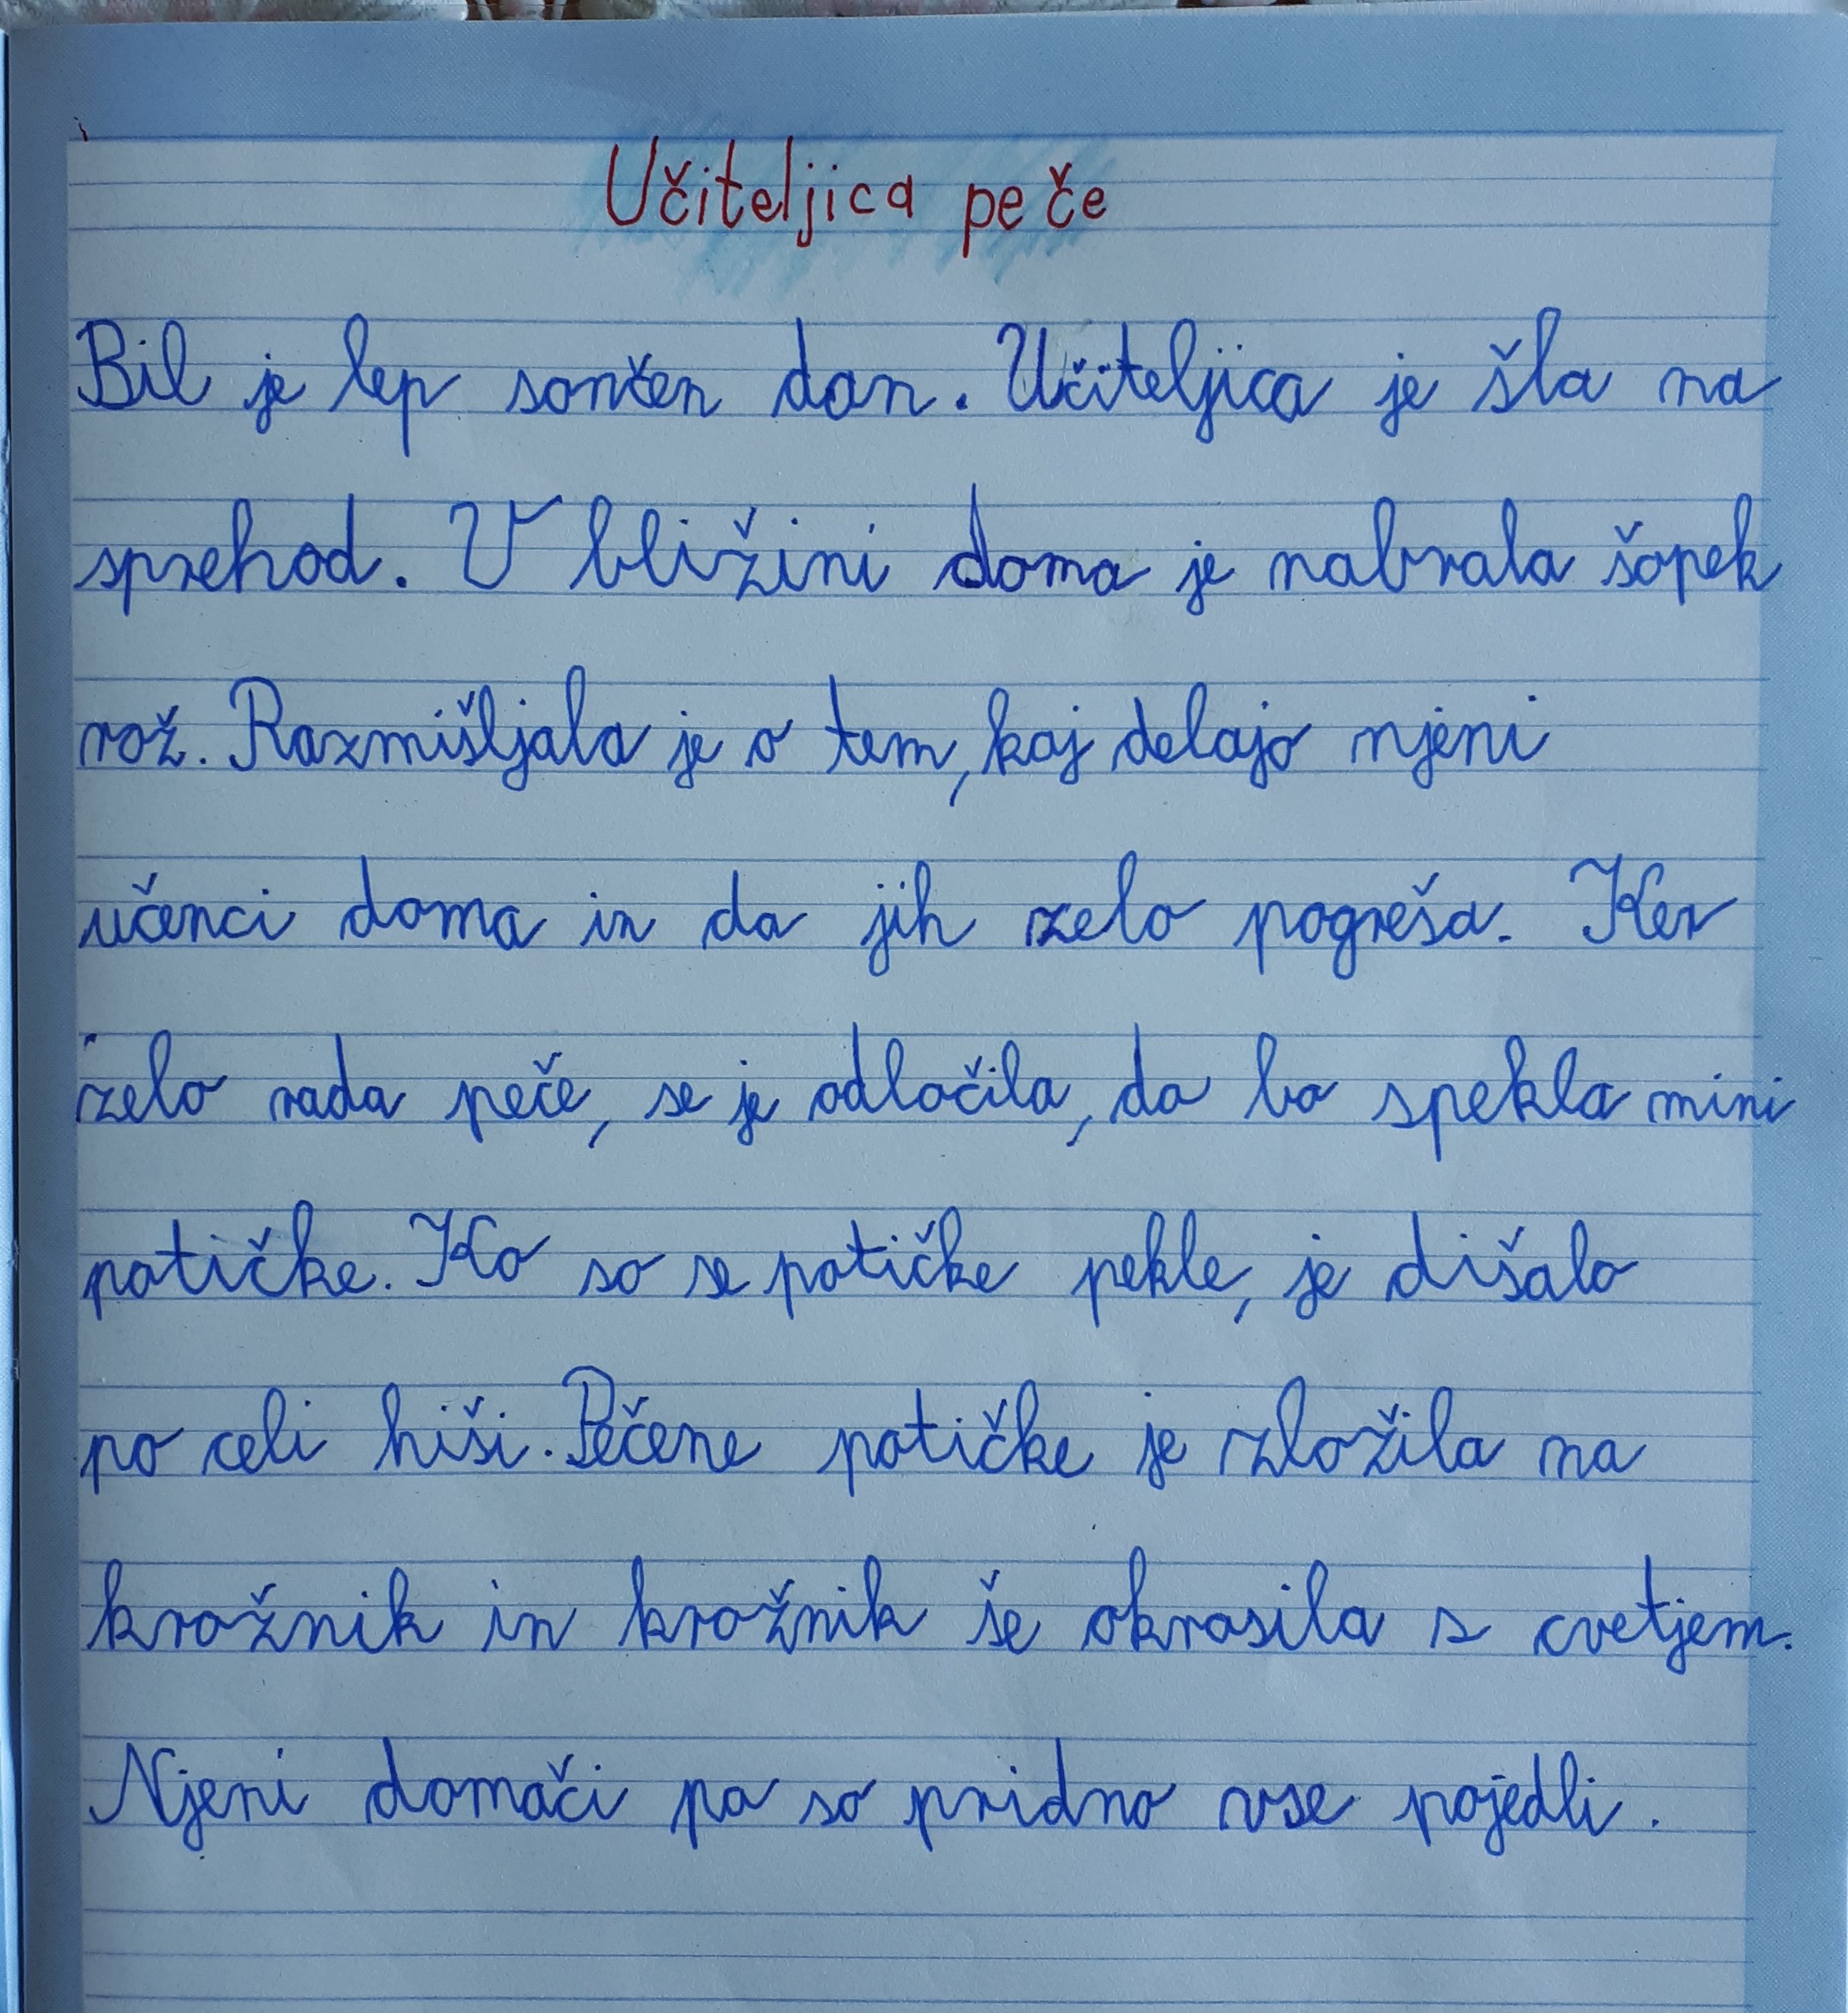 Učiteljica peče
Bil je lep sončen dan. Učiteljica je šla na
sprehod. V bližini doma je nabrala šopek
rož. Razmišljala je o tem, kaj delajo njeni
učenci doma in da jih zelo pogreša. Ker
zelo rada peče, se je odločila, da bo spekla mini
potičke. Ko so se potičke pekle, je dišalo
po celi hiši. Pečene potičke je zložila na
krožnik in krožnik še okrasila s cvetjem.
Njeni domači pa so pridno vse pojedli.